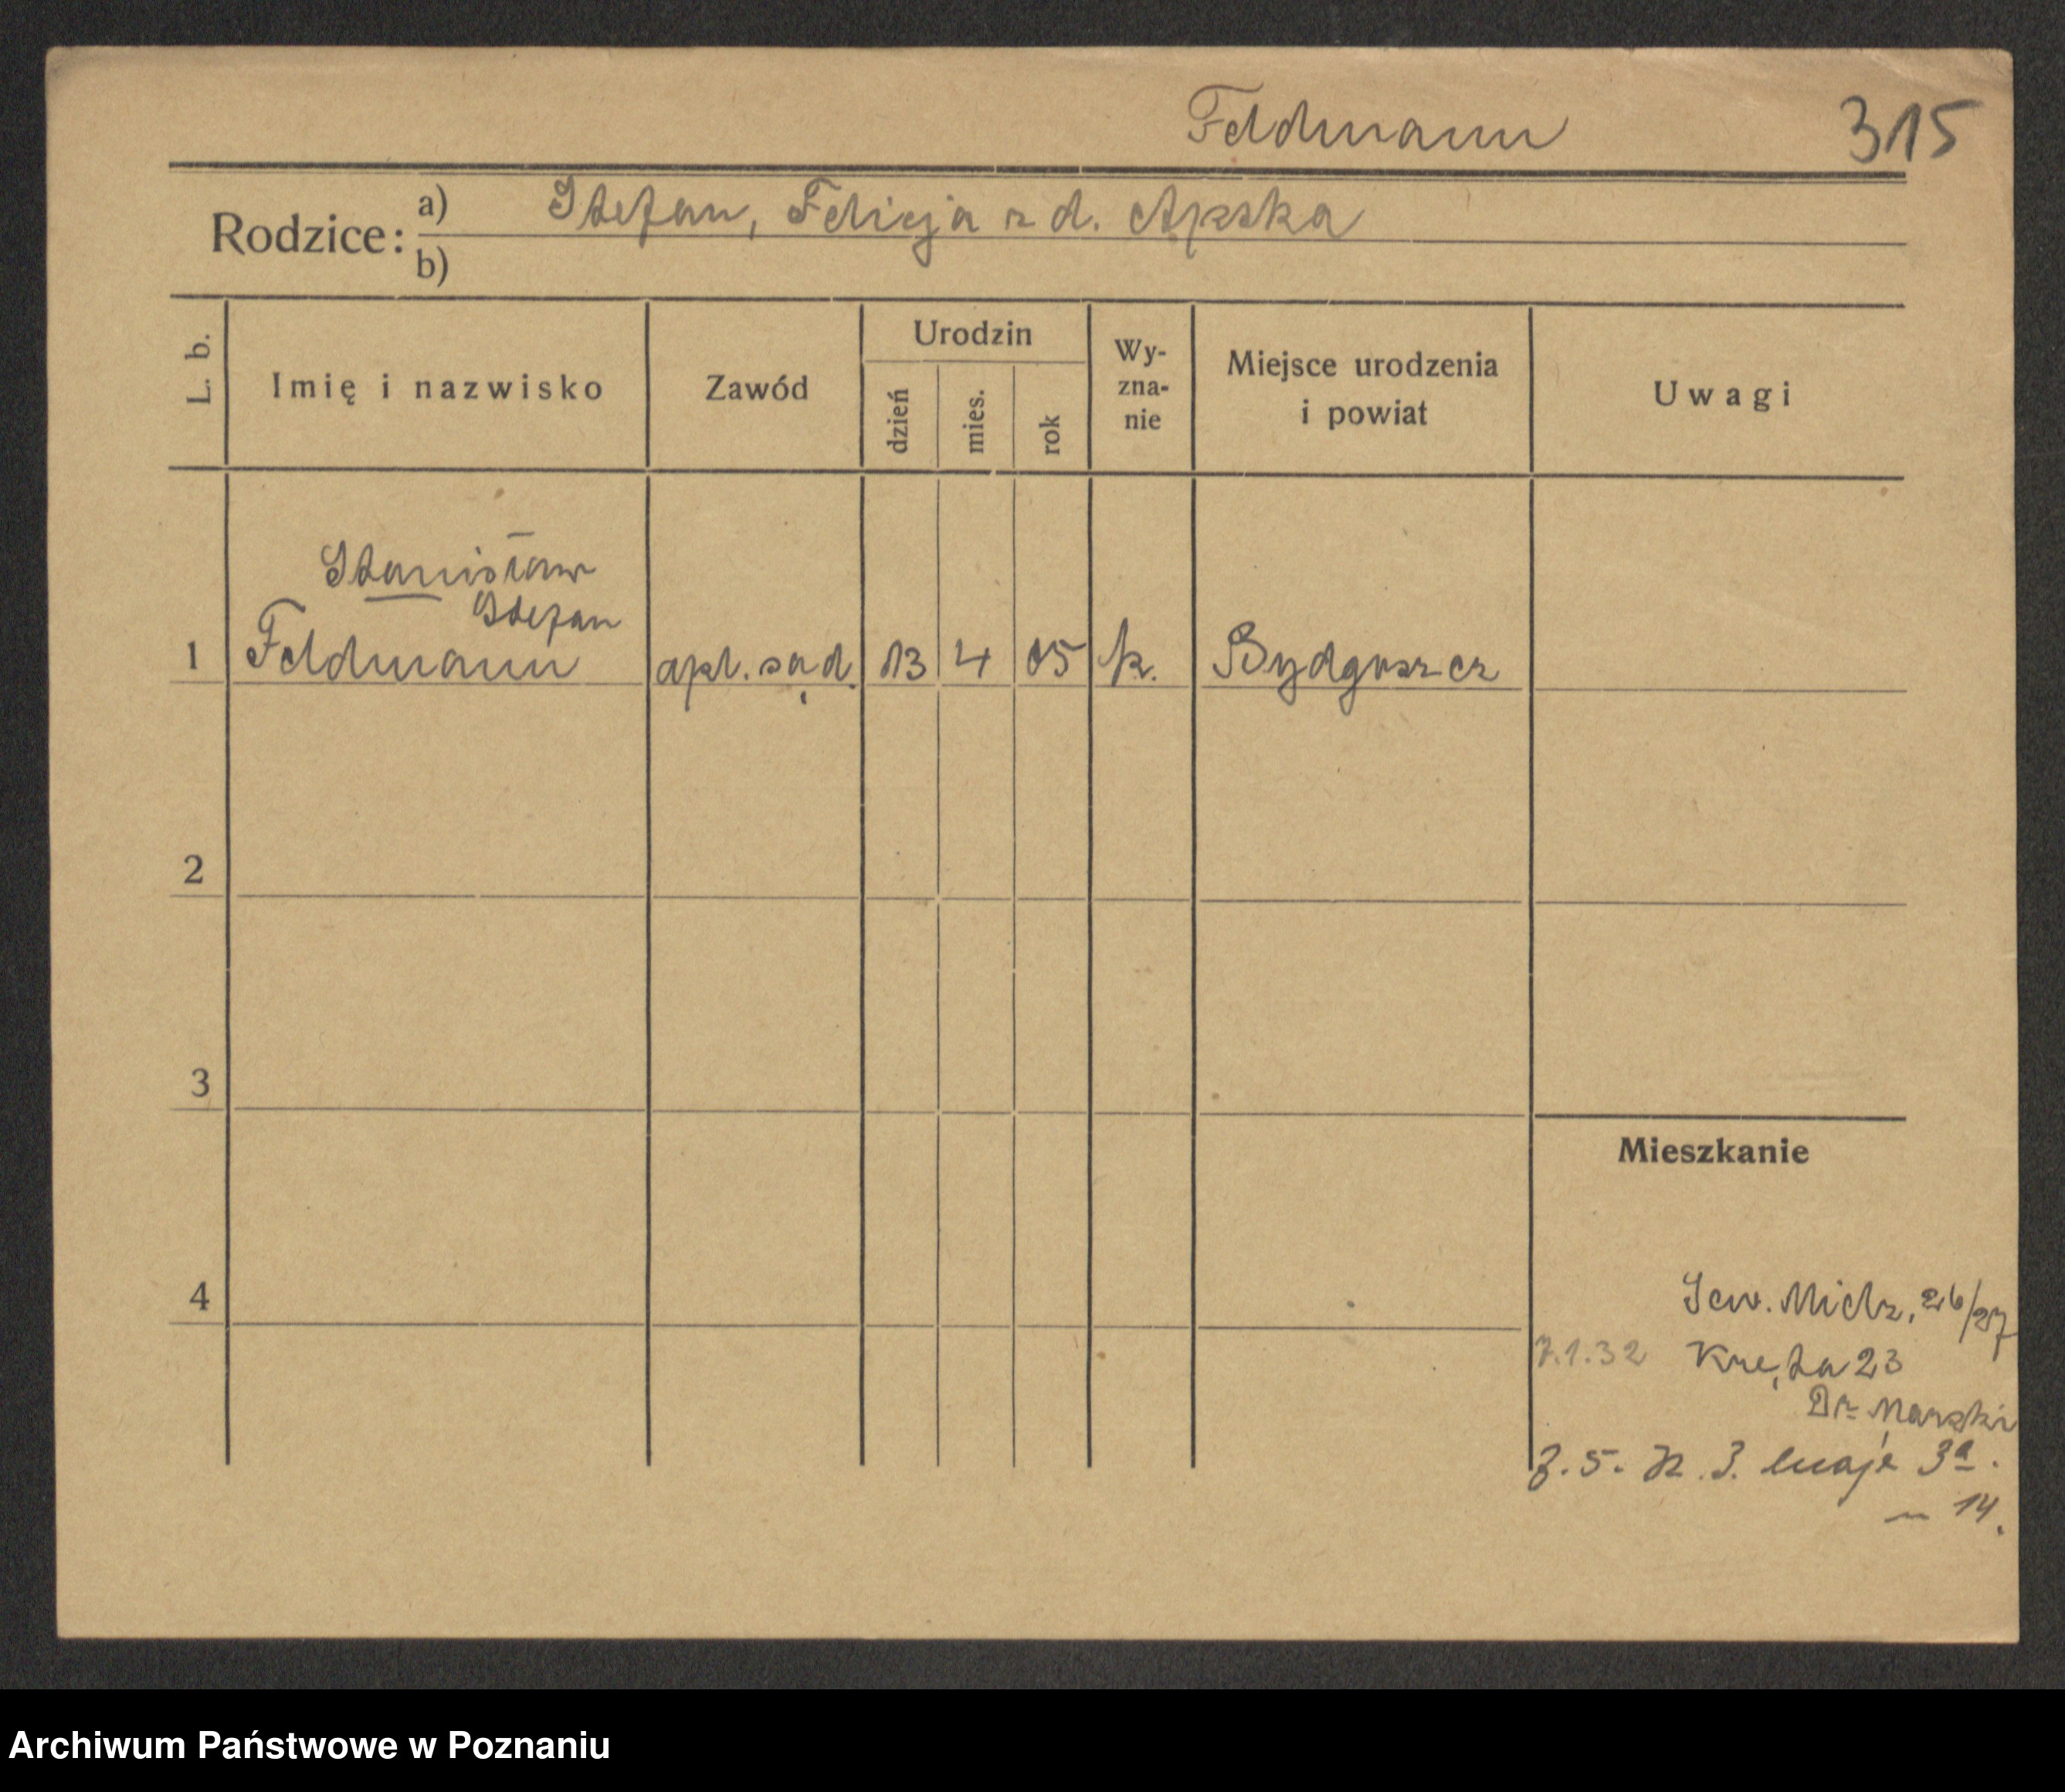 Feldmann 315
Rodzice: a) Stefan, Felicja z d. Apska
b)
L. b. Imię i nazwisko Zawód Urodzin dzień mies. rok Wy-zna-nie Miejsce urodzenia i powiat Uwagi
Stanisław
Stefan
1 Feldmann apl. sąd. 13 4 05 k. Bydgoszcz
2
3
Mieszkanie
4
Sew. Mielż. 26/27
7.1.32 Kręta 23
Dr. Marski
3 maja 3a.
14.
Archiwum Państwowe w Poznaniu